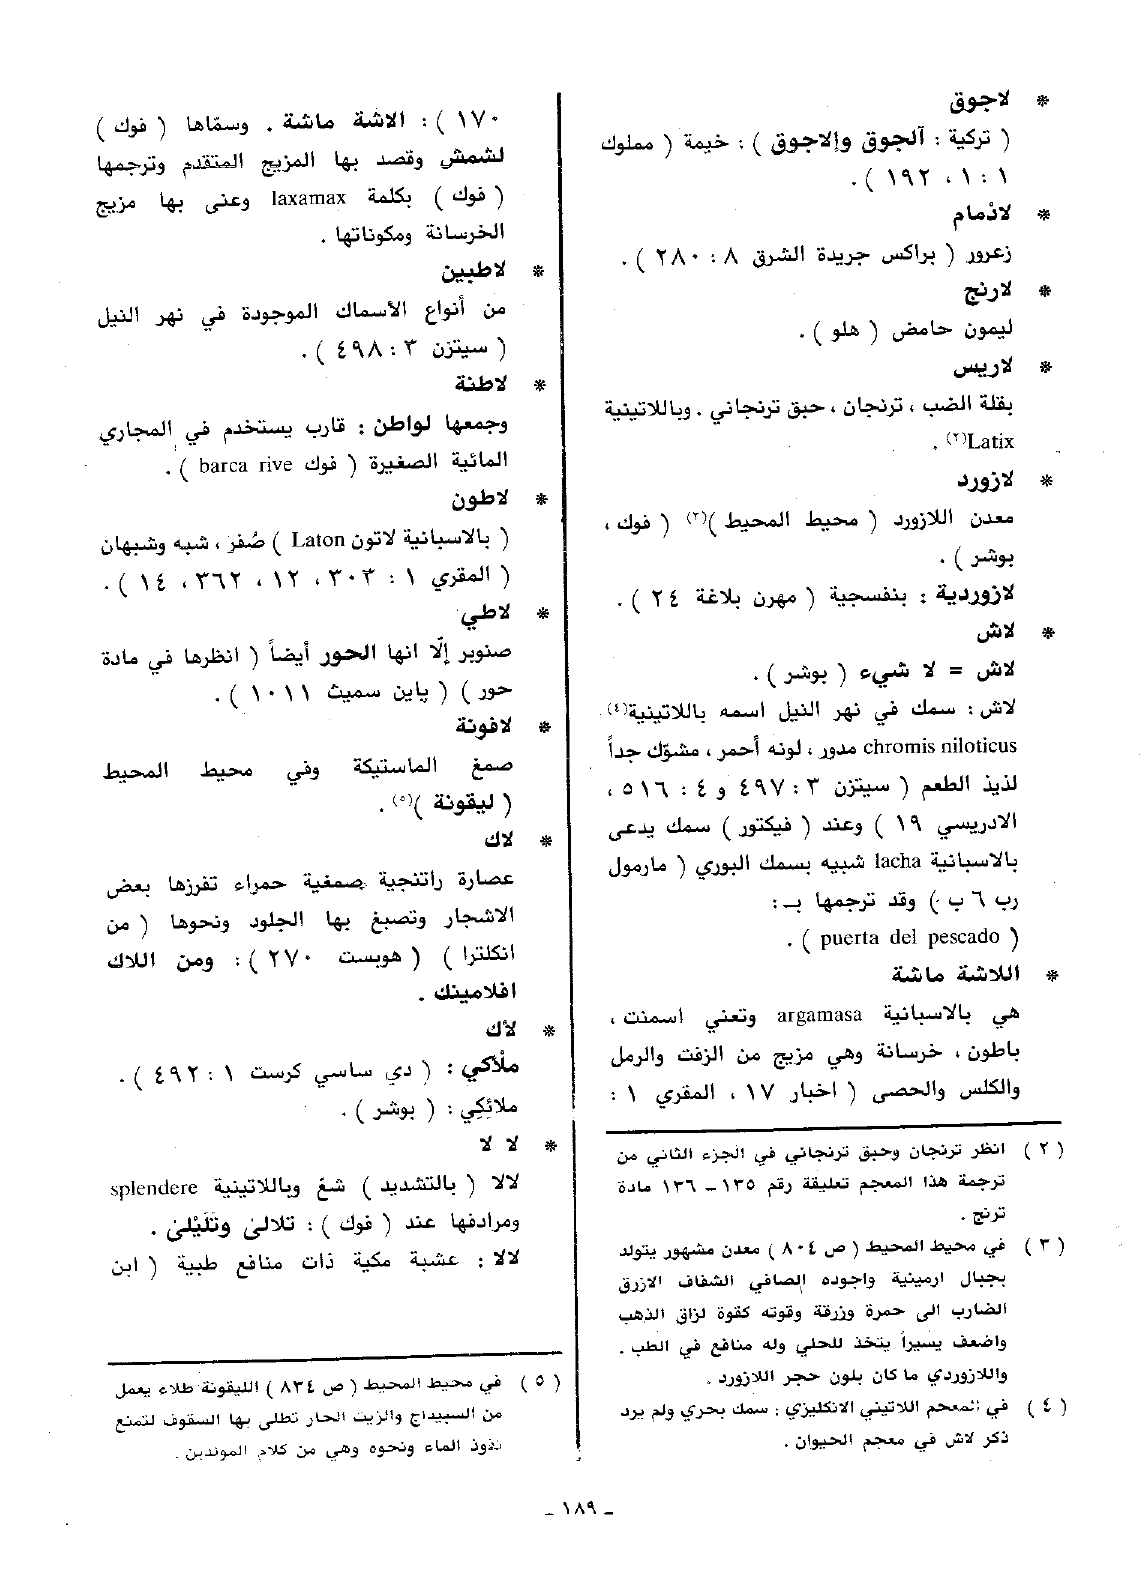 * لاجوق
( تركية : آلجوق وإلاجوق ) : خيمة ( مملوك
١ : ١ ، ١٩٢ ) .
* لاذمام
زعرور ( براكس جريدة الشرق ٨ : ٢٨٠ ) .
* لارنج
ليمون حامض ( هلو ) .
* لاريس
بقلة الضب ، ترنجان ، حبق ترنجاني . وباللاتينية
Latix(٢) .
* لازورد
معدن اللازورد ( محيط المحيط )(٣) ( فوك ،
بوشر ) .
لازوردية : بنفسجية ( مهرن بلاغة ٢٤ ) .
* لاش
لاش = لا شيء ( بوشر ) .
لاش : سمك في نهر النيل اسمه باللاتينية(٤)
chromis niloticus مدور ، لونه أحمر ، مشوّك جداً
لذيذ الطعم ( سيتزن ٣ : ٤٩٧ و ٤ : ٥١٦ ،
الادريسي ١٩ ) وعند ( فيكتور ) سمك يدعى
بالاسبانية lacha شبيه بسمك البوري ( مارمول
رب ٦ ب ) وقد ترجمها بـ :
( puerta del pescado ) .
* اللاشة ماشة
هي بالاسبانية argamasa وتعني اسمنت ،
باطون ، خرسانة وهي مزيج من الزفت والرمل
والكلس والحصى ( اخبار ١٧ ، المقري ١ :
( ٢ ) انظر ترنجان وحبق ترنجاني في الجزء الثاني من
ترجمة هذا المعجم تعليقة رقم ١٣٥ ـ ١٣٦ مادة
ترنج .
( ٣ ) في محيط المحيط ( ص ٨٠٤ ) معدن مشهور يتولد
بجبال ارمينية واجوده الصافي الشفاف الازرق
الضارب الى حمرة وزرقة وقوته كقوة لزاق الذهب
واضعف يسيراً يتخذ للحلي وله منافع في الطب .
واللازوردي ما كان بلون حجر اللازورد .
( ٤ ) في المعجم اللاتيني الانكليزي : سمك بحري ولم يرد
ذكر لاش في معجم الحيوان .
١٧٠ ) : الاشة ماشة . وسمّاها ( فوك )
لشمش وقصد بها المزيج المتقدم وترجمها
( فوك ) بكلمة laxamax وعنى بها مزيج
الخرسانة ومكوناتها .
* لاطبين
من أنواع الأسماك الموجودة في نهر النيل
( سيتزن ٣ : ٤٩٨ ) .
* لاطنة
وجمعها لواطن : قارب يستخدم في المجاري
المائية الصغيرة ( فوك barca rive ) .
* لاطون
( بالاسبانية لاتون Laton ) صُفر ، شبه وشبهان
( المقري ١ : ٣٠٣ ، ١٢ ، ٣٦٢ ، ١٤ ) .
* لاطي
صنوبر إلّا انها الحور أيضاً ( انظرها في مادة
حور ) ( پاين سميث ١٠١١ ) .
* لافونة
صمغ الماستيكة وفي محيط المحيط
( ليقونة )(٥) .
* لاك
عصارة راتنجية صمغية حمراء تفرزها بعض
الاشجار وتصبغ بها الجلود ونحوها ( من
انكلترا ) ( هوبست ٢٧٠ ) : ومن اللاك
افلامينك .
* لأك
ملأكي : ( دي ساسي كرست ١ : ٤٩٢ ) .
ملائِكي : ( بوشر ) .
* لا لا
لالا ( بالتشديد ) شعَّ وباللاتينية splendere
ومرادفها عند ( فوك ) : تلالىْ وتَلَيْلىْ .
لالا : عشبة مكية ذات منافع طبية ( ابن
( ٥ ) في محيط المحيط ( ص ٨٣٤ ) الليقونة طلاء يعمل
من السبيداج والزيت الحار تطلى بها السقوف لتمنع
نذوذ الماء ونحوه وهي من كلام الموندين .
ـ ١٨٩ ـ